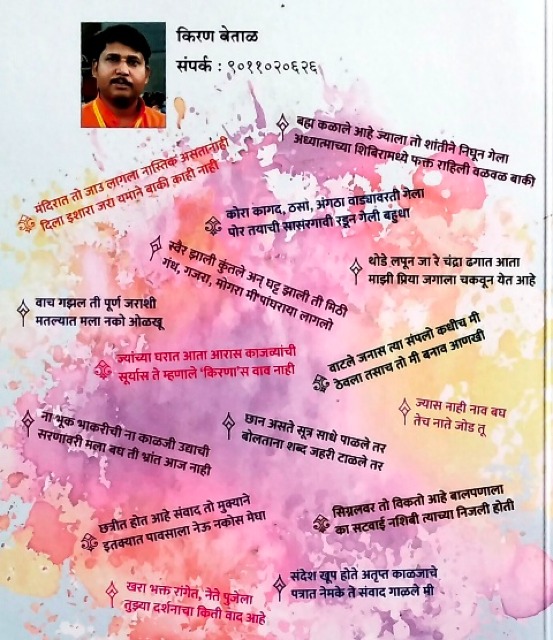 किरण बेताळ
संपर्क : ९०११०२०६२६
ब्रह्म कळाले आहे ज्याला तो शांतीने निघून गेला
अध्यात्माच्या शिबिरामध्ये फक्त राहिली वळवळ बाकी
मंदिरात तो जाउ लागला नास्तिक असतानाही
दिला इशारा जरा यमाने बाकी काही नाही
कोरा कागद, ठसा, अंगठा वाड्यावरती गेला
पोर तयाची सासरगावी रडून गेली बहुधा
स्वैर झाली कुंतले अन् घट्ट झाली ती मिठी
गंध, गजरा, मोगरा मी पांघराया लागलो
थोडे लपून जा रे चंद्रा ढगात आता
माझी प्रिया जगाला चकवून येत आहे
वाच गझल ती पूर्ण जराशी
मतल्यात मला नको ओळखू
ज्यांच्या घरात आता आरास काजव्यांची
सूर्यास ते म्हणाले 'किरणा'स वाव नाही
वाटले जनास त्या संपलो कधीच मी
ठेवला तसाच तो मी बनाव आणखी
ज्यास नाही नाव बघ
तेच नाते जोड तू
ना भूक भाकरीची ना काळजी उद्याची
सरणावरी मला बघ ती भ्रांत आज नाही
छान असते सूत्र साधे पाळले तर
बोलताना शब्द जहरी टाळले तर
छत्रीत होत आहे संवाद तो मुक्याने
इतक्यात पावसाला नेऊ नकोस मेघा
सिग्नलवर तो विकतो आहे बालपणाला
का सटवाई नशिबी त्याच्या निजली होती
खरा भक्त रांगेत, नेते पुजेला
तुझ्या दर्शनाचा किती वाद आहे
संदेश खूप होते अतृप्त काळजाचे
पत्रात नेमके ते संवाद गाळले मी